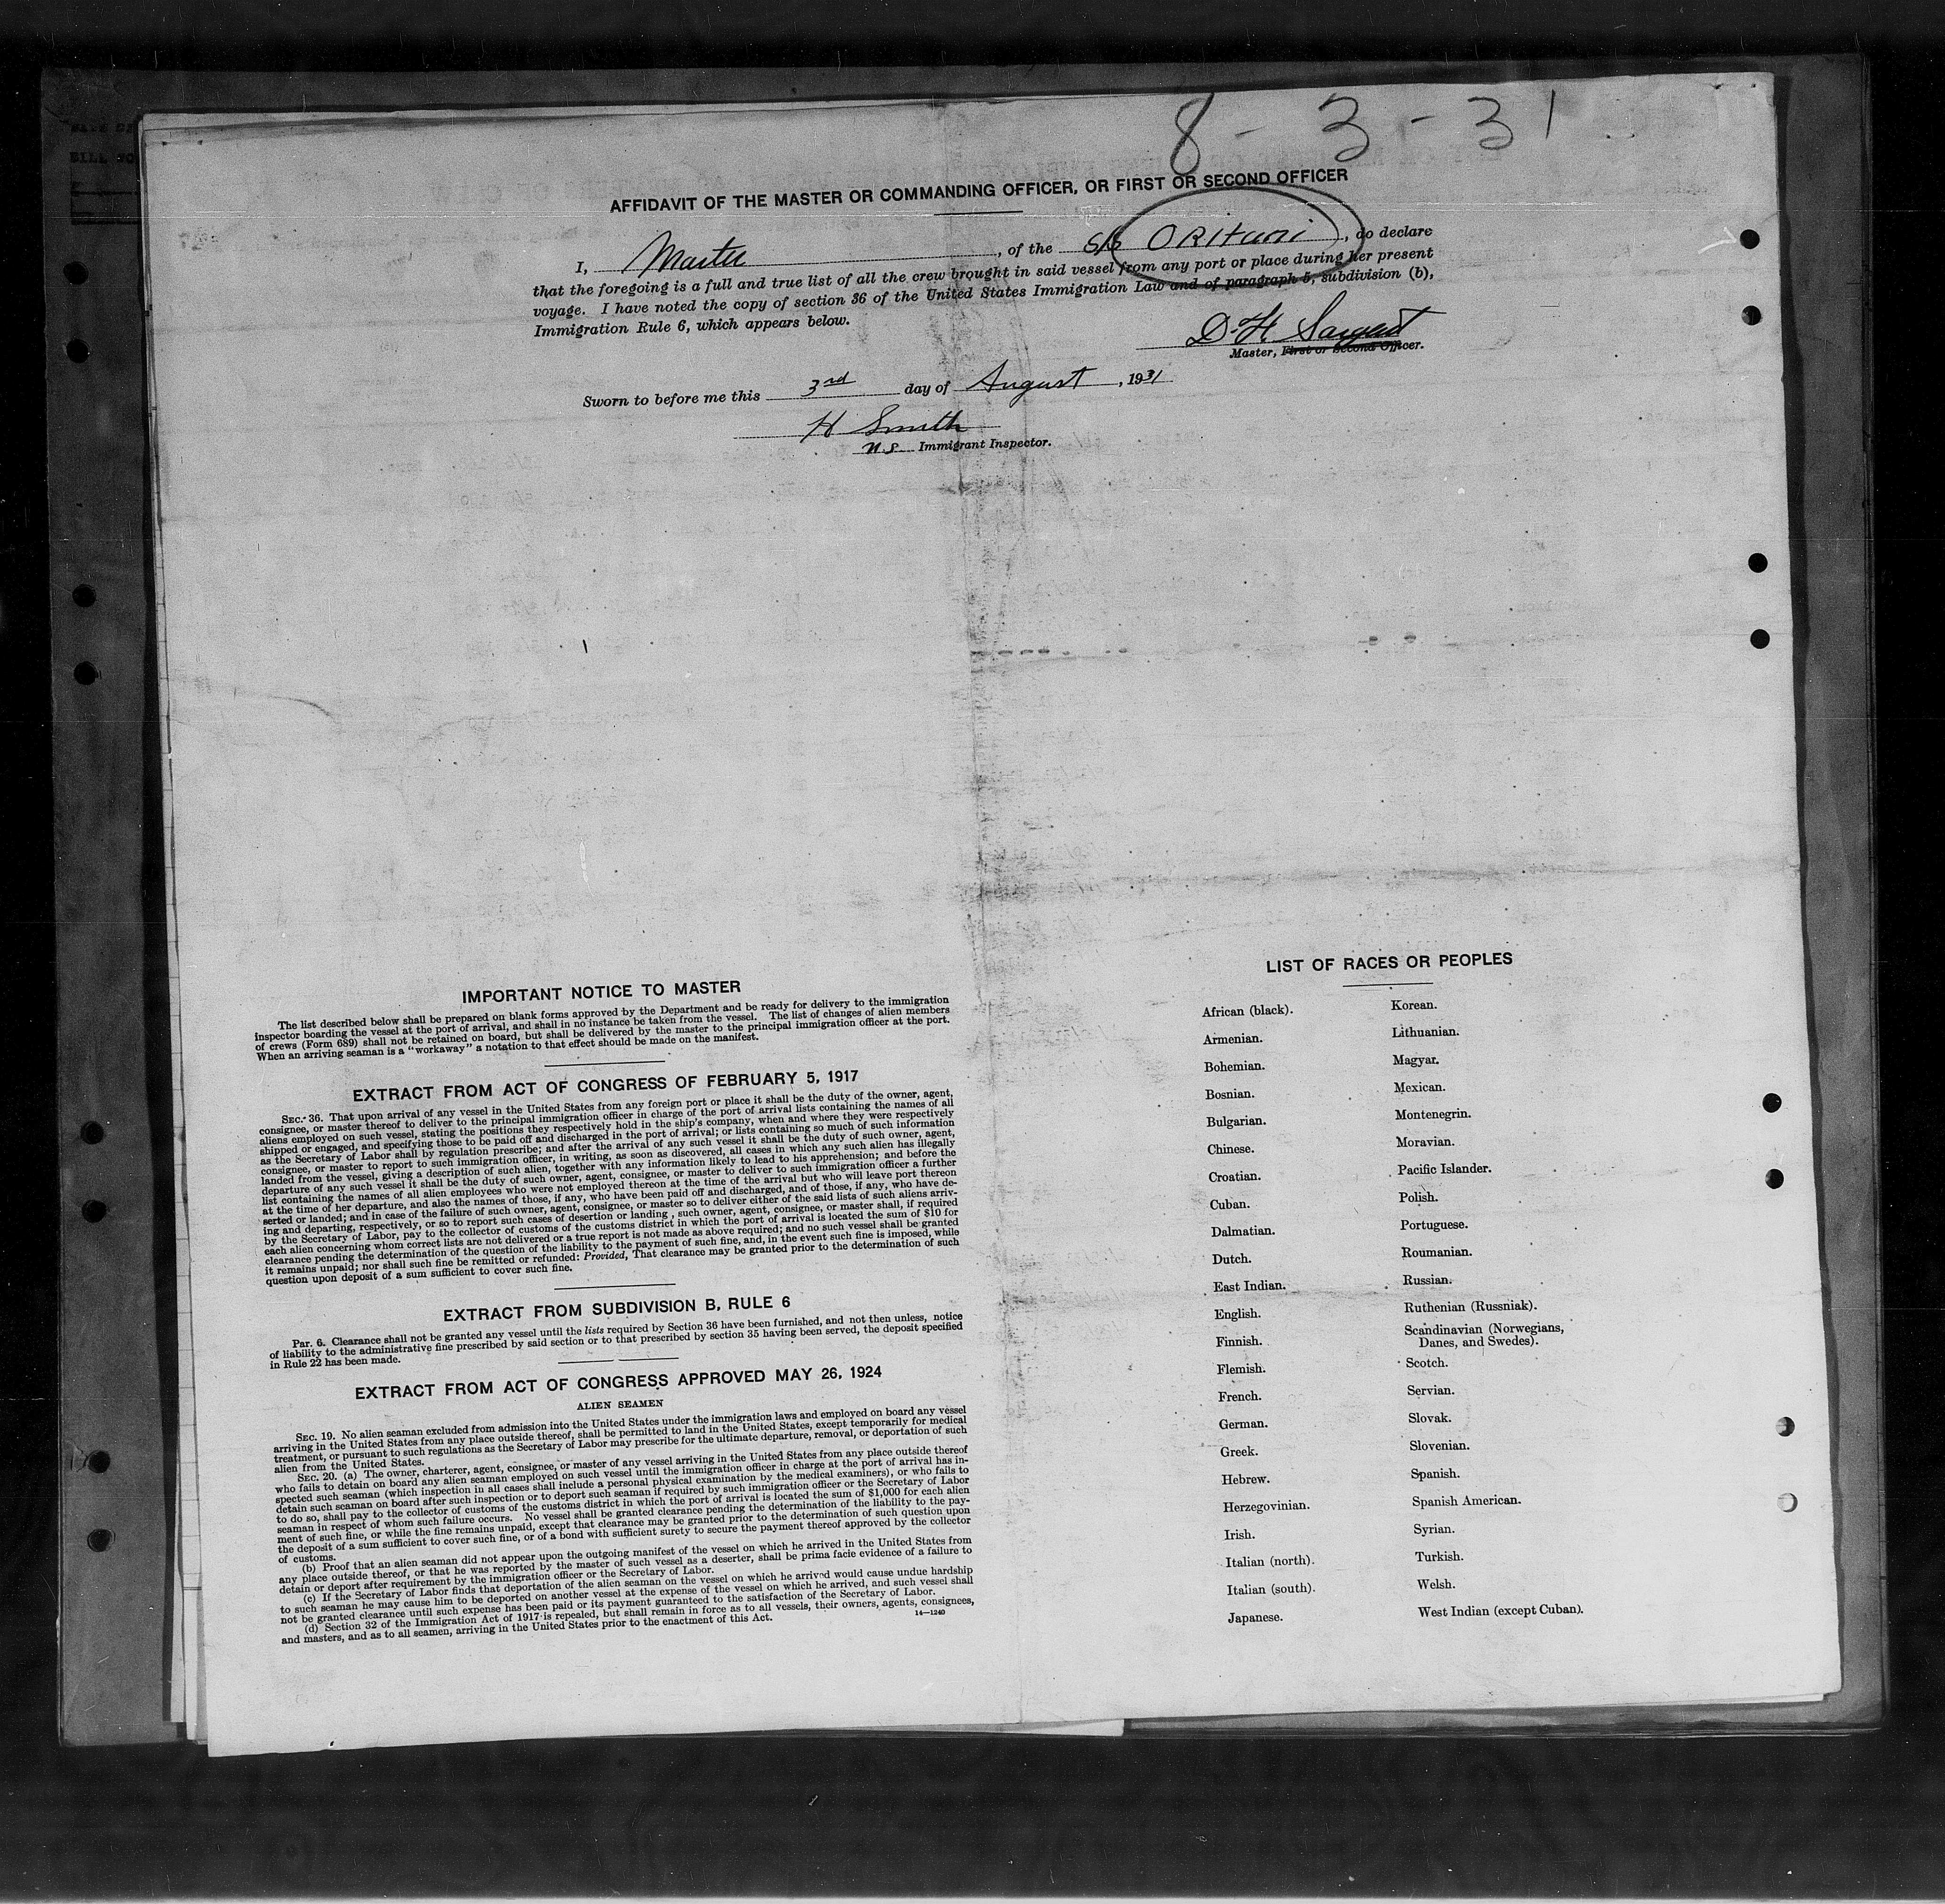 8 - 3 - 31
AFFIDAVIT OF THE MASTER OR COMMANDING OFFICER, OR FIRST OR SECOND OFFICER
I, Master, of the S/S ORITUNI, do declare
that the foregoing is a full and true list of all the crew brought in said vessel from any port or place during her present
voyage. I have noted the copy of section 36 of the United States Immigration Law and of paragraph 5, subdivision (b),
Immigration Rule 6, which appears below.
D. H Sargent
Master, First or Second Officer.
Sworn to before me this 3rd day of August, 1931
H Smith
U.S. Immigrant Inspector.
IMPORTANT NOTICE TO MASTER
The list described below shall be prepared on blank forms approved by the Department and be ready for delivery to the immigration
inspector boarding the vessel at the port of arrival, and shall in no instance be taken from the vessel. The list of changes of alien members
of crews (Form 689) shall not be retained on board, but shall be delivered by the master to the principal immigration officer at the port.
When an arriving seaman is a "workaway" a notation to that effect should be made on the manifest.
EXTRACT FROM ACT OF CONGRESS OF FEBRUARY 5, 1917
SEC. 36. That upon arrival of any vessel in the United States from any foreign port or place it shall be the duty of the owner, agent,
consignee, or master thereof to deliver to the principal immigration officer in charge of the port of arrival lists containing the names of all
aliens employed on such vessel, stating the positions they respectively hold in the ship's company, when and where they were respectively
shipped or engaged, and specifying those to be paid off and discharged in the port of arrival; or lists containing so much of such information
as the Secretary of Labor shall by regulation prescribe; and after the arrival of any such vessel it shall be the duty of such owner, agent,
consignee, or master to report to such immigration officer, in writing, as soon as discovered, all cases in which any such alien has illegally
landed from the vessel, giving a description of such alien, together with any information likely to lead to his apprehension; and before the
departure of any such vessel it shall be the duty of such owner, agent, consignee, or master to deliver to such immigration officer a further
list containing the names of all alien employees who were not employed thereon at the time of the arrival but who will leave port thereon
at the time of her departure, and also the names of those, if any, who have been paid off and discharged, and of those, if any, who have de-
serted or landed; and in case of the failure of such owner, agent, consignee, or master so to deliver either of the said lists of such aliens arriv-
ing and departing, respectively, or so to report such cases of desertion or landing , such owner, agent, consignee, or master shall, if required
by the Secretary of Labor, pay to the collector of customs of the customs district in which the port of arrival is located the sum of $10 for
each alien concerning whom correct lists are not delivered or a true report is not made as above required; and no such vessel shall be granted
clearance pending the determination of the question of the liability to the payment of such fine, and, in the event such fine is imposed, while
it remains unpaid; nor shall such fine be remitted or refunded: Provided, That clearance may be granted prior to the determination of such
question upon deposit of a sum sufficient to cover such fine.
EXTRACT FROM SUBDIVISION B, RULE 6
Par. 6. Clearance shall not be granted any vessel until the lists required by Section 36 have been furnished, and not then unless, notice
of liability to the administrative fine prescribed by said section or to that prescribed by section 35 having been served, the deposit specified
in Rule 22 has been made.
EXTRACT FROM ACT OF CONGRESS APPROVED MAY 26, 1924
ALIEN SEAMEN
SEC. 19. No alien seaman excluded from admission into the United States under the immigration laws and employed on board any vessel
arriving in the United States from any place outside thereof, shall be permitted to land in the United States, except temporarily for medical
treatment, or pursuant to such regulations as the Secretary of Labor may prescribe for the ultimate departure, removal, or deportation of such
alien from the United States.
SEC. 20. (a) The owner, charterer, agent, consignee, or master of any vessel arriving in the United States from any place outside thereof
who fails to detain on board any alien seaman employed on such vessel until the immigration officer in charge at the port of arrival has in-
spected such seaman (which inspection in all cases shall include a personal physical examination by the medical examiners), or who fails to
detain such seaman on board after such inspection or to deport such seaman if required by such immigration officer or the Secretary of Labor
to do so, shall pay to the collector of customs of the customs district in which the port of arrival is located the sum of $1,000 for each alien
seaman in respect of whom such failure occurs. No vessel shall be granted clearance pending the determination of the liability to the pay-
ment of such fine, or while the fine remains unpaid, except that clearance may be granted prior to the determination of such question upon
the deposit of a sum sufficient to cover such fine, or of a bond with sufficient surety to secure the payment thereof approved by the collector
of customs.
(b) Proof that an alien seaman did not appear upon the outgoing manifest of the vessel on which he arrived in the United States from
any place outside thereof, or that he was reported by the master of such vessel as a deserter, shall be prima facie evidence of a failure to
detain or deport after requirement by the immigration officer or the Secretary of Labor.
(c) If the Secretary of Labor finds that deportation of the alien seaman on the vessel on which he arrived would cause undue hardship
to such seaman he may cause him to be deported on another vessel at the expense of the vessel on which he arrived, and such vessel shall
not be granted clearance until such expense has been paid or its payment guaranteed to the satisfaction of the Secretary of Labor.
(d) Section 32 of the Immigration Act of 1917 is repealed, but shall remain in force as to all vessels, their owners, agents, consignees,
and masters, and as to all seamen, arriving in the United States prior to the enactment of this Act.
14—1240
LIST OF RACES OR PEOPLES
African (black).
Armenian.
Bohemian.
Bosnian.
Bulgarian.
Chinese.
Croatian.
Cuban.
Dalmatian.
Dutch.
East Indian.
English.
Finnish.
Flemish.
French.
German.
Greek.
Hebrew.
Herzegovinian.
Irish.
Italian (north).
Italian (south).
Japanese.
Korean.
Lithuanian.
Magyar.
Mexican.
Montenegrin.
Moravian.
Pacific Islander.
Polish.
Portuguese.
Roumanian.
Russian.
Ruthenian (Russniak).
Scandinavian (Norwegians,
Danes, and Swedes).
Scotch.
Servian.
Slovak.
Slovenian.
Spanish.
Spanish American.
Syrian.
Turkish.
Welsh.
West Indian (except Cuban).